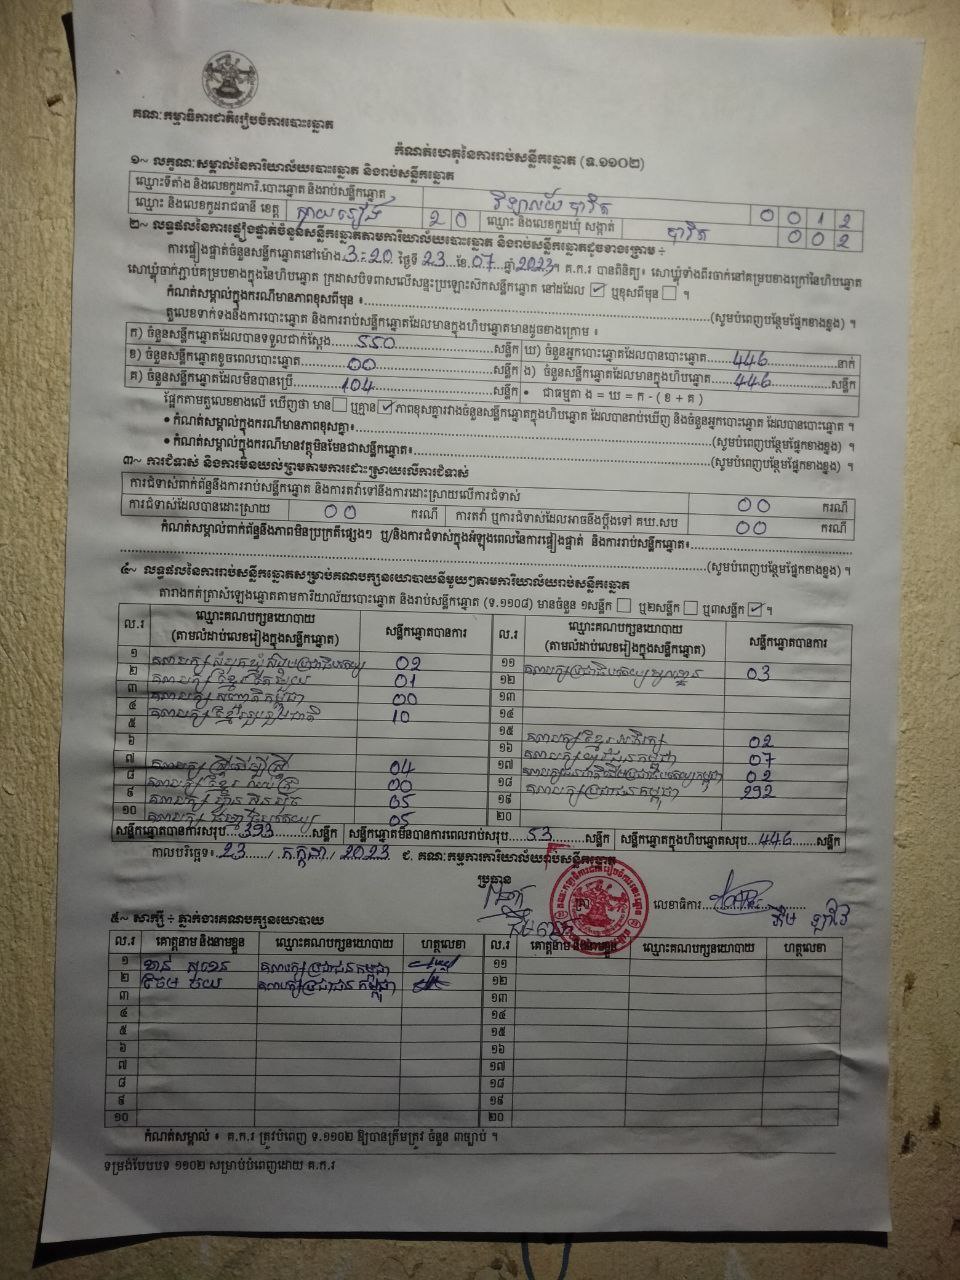 គណៈកម្មាធិការជាតិរៀបចំការបោះឆ្នោត
កំណត់ហេតុនៃការរាប់សន្លឹកឆ្នោត (ទ.១១០២)
១~ លក្ខណៈសម្គាល់នៃការិយាល័យបោះឆ្នោត និងរាប់សន្លឹកឆ្នោត
ឈ្មោះទីតាំង និងលេខកូដការិ.បោះឆ្នោត និងរាប់សន្លឹកឆ្នោត វិទ្យាល័យ បាវិត 0 0 1 2
ឈ្មោះ និងលេខកូដរាជធានី ខេត្ត ស្វាយរៀង 2 0 ឈ្មោះ និងលេខកូដឃុំ សង្កាត់ បាវិត 0 0 2
២~ លទ្ធផលនៃការផ្ទៀងផ្ទាត់ចំនួនសន្លឹកឆ្នោតតាមការិយាល័យបោះឆ្នោត និងរាប់សន្លឹកឆ្នោតដូចខាងក្រោម ÷
ការផ្ទៀងផ្ទាត់ចំនួនសន្លឹកឆ្នោតនៅម៉ោង 3:20 ថ្ងៃទី 23 ខែ 07 ឆ្នាំ 2023។ គ.ក.រ បានពិនិត្យ៖ សោឃ្លុំទាំងពីរចាក់នៅគម្របខាងក្រៅនៃហិបឆ្នោត
សោឃ្លុំចាក់ភ្ជាប់គម្របខាងក្នុងនៃហិបឆ្នោត ក្រដាសបិទពាសលើសន្ទះប្រឡោះស៊កសន្លឹកឆ្នោត នៅដដែល ☑ ឬខុសពីមុន ☐ ។
កំណត់សម្គាល់ក្នុងករណីមានភាពខុសពីមុន ៖ (សូមបំពេញបន្ថែមផ្នែកខាងខ្នង) ។
តួលេខទាក់ទងនឹងការបោះឆ្នោត និងការរាប់សន្លឹកឆ្នោតដែលមានក្នុងហិបឆ្នោតមានដូចខាងក្រោម ៖
ក) ចំនួនសន្លឹកឆ្នោតដែលបានទទួលជាក់ស្តែង 550 សន្លឹក ឃ) ចំនួនអ្នកបោះឆ្នោតដែលបានបោះឆ្នោត 446 នាក់
ខ) ចំនួនសន្លឹកឆ្នោតខូចពេលបោះឆ្នោត 00 សន្លឹក ង) ចំនួនសន្លឹកឆ្នោតដែលមានក្នុងហិបឆ្នោត 446 សន្លឹក
គ) ចំនួនសន្លឹកឆ្នោតដែលមិនបានប្រើ 104 សន្លឹក • ជាធម្មតា ង = ឃ = ក - ( ខ + គ )
ផ្អែកតាមតួលេខខាងលើ ឃើញថា មាន ☐ ឬគ្មាន ☑ ភាពខុសគ្នារវាងចំនួនសន្លឹកឆ្នោតក្នុងហិបឆ្នោត ដែលបានរាប់ឃើញ និងចំនួនអ្នកបោះឆ្នោត ដែលបានបោះឆ្នោត ។
• កំណត់សម្គាល់ក្នុងករណីមានភាពខុសគ្នា៖ (សូមបំពេញបន្ថែមផ្នែកខាងខ្នង) ។
• កំណត់សម្គាល់ក្នុងករណីមានវត្ថុមិនមែនជាសន្លឹកឆ្នោត៖ (សូមបំពេញបន្ថែមផ្នែកខាងខ្នង) ។
៣~ ការជំទាស់ និងការមិនយល់ព្រមតាមការដោះស្រាយលើការជំទាស់
ការជំទាស់ពាក់ព័ន្ធនឹងការរាប់សន្លឹកឆ្នោត និងការតវ៉ាទៅនឹងការដោះស្រាយលើការជំទាស់ 00 ករណី
ការជំទាស់ដែលបានដោះស្រាយ 00 ករណី ការតវ៉ា ឬការជំទាស់ដែលអាចនឹងប្តឹងទៅ គឃ.សប 00 ករណី
កំណត់សម្គាល់ពាក់ព័ន្ធនឹងភាពមិនប្រក្រតីផ្សេងៗ ឬ/និងការជំទាស់ក្នុងអំឡុងពេលនៃការផ្ទៀងផ្ទាត់ និងការរាប់សន្លឹកឆ្នោត៖
(សូមបំពេញបន្ថែមផ្នែកខាងខ្នង) ។
៤~ លទ្ធផលនៃការរាប់សន្លឹកឆ្នោតសម្រាប់គណបក្សនយោបាយនីមួយៗតាមការិយាល័យរាប់សន្លឹកឆ្នោត
តារាងកត់ត្រាសំឡេងឆ្នោតតាមការិយាល័យបោះឆ្នោត និងរាប់សន្លឹកឆ្នោត (ទ.១១០៨) មានចំនួន ១សន្លឹក ☐ ឬ២សន្លឹក ☐ ឬ៣សន្លឹក ☑ ។
ល.រ ឈ្មោះគណបក្សនយោបាយ (តាមលំដាប់លេខរៀងក្នុងសន្លឹកឆ្នោត) សន្លឹកឆ្នោតបានការ ល.រ ឈ្មោះគណបក្សនយោបាយ (តាមលំដាប់លេខរៀងក្នុងសន្លឹកឆ្នោត) សន្លឹកឆ្នោតបានការ
១ គណបក្ស សំបុកឃ្មុំសង្គមប្រជាធិបតេយ្យ 02 ១១ គណបក្សប្រជាធិបតេយ្យមូលដ្ឋាន 03
២ គណបក្ស ខ្មែរតែមួយ 01 ១២
៣ គណបក្ស សញ្ជាតិកម្ពុជា 00 ១៣
៤ គណបក្ស ខ្មែររួបរួមជាតិ 10 ១៤
៥ ១៥ គណបក្ស ខ្មែរអភិរក្ស 02
៦ ១៦ គណបក្ស យុវជនកម្ពុជា 07
៧ គណបក្ស ស្ត្រីដើម្បីស្ត្រី 04 ១៧ គណបក្សជនជាតិដើមប្រជាធិបតេយ្យកម្ពុជា 02
៨ គណបក្ស ខ្មែរ ឈប់ក្រ 00 ១៨ គណបក្សប្រជាជនកម្ពុជា 292
៩ គណបក្ស ហ្វ៊ុនស៊ិនប៉ិច 05 ១៩
១០ គណបក្ស ធម្មាធិបតេយ្យ 05 ២០
សន្លឹកឆ្នោតបានការសរុប 393 សន្លឹក សន្លឹកឆ្នោតមិនបានការពេលរាប់សរុប 53 សន្លឹក សន្លឹកឆ្នោតក្នុងហិបឆ្នោតសរុប 446 សន្លឹក
កាលបរិច្ឆេទ៖ 23 / កក្កដា / 2023 ជ. គណៈកម្មការការិយាល័យរាប់សន្លឹកឆ្នោត
ប្រធាន
លេខាធិការ
៥~ សាក្សី ÷ ភ្នាក់ងារគណបក្សនយោបាយ
ល.រ គោត្តនាម និងនាមខ្លួន ឈ្មោះគណបក្សនយោបាយ ហត្ថលេខា ល.រ គោត្តនាម និងនាមខ្លួន ឈ្មោះគណបក្សនយោបាយ ហត្ថលេខា
១ គណបក្សប្រជាជនកម្ពុជា ១១
២ គណបក្សប្រជាជនកម្ពុជា ១២
៣ ១៣
៤ ១៤
៥ ១៥
៦ ១៦
៧ ១៧
៨ ១៨
៩ ១៩
១០ ២០
កំណត់សម្គាល់ ៖ គ.ក.រ ត្រូវបំពេញ ទ.១១០២ ឱ្យបានត្រឹមត្រូវ ចំនួន ៣ច្បាប់ ។
ទម្រង់បែបបទ ១១០២ សម្រាប់បំពេញដោយ គ.ក.រ